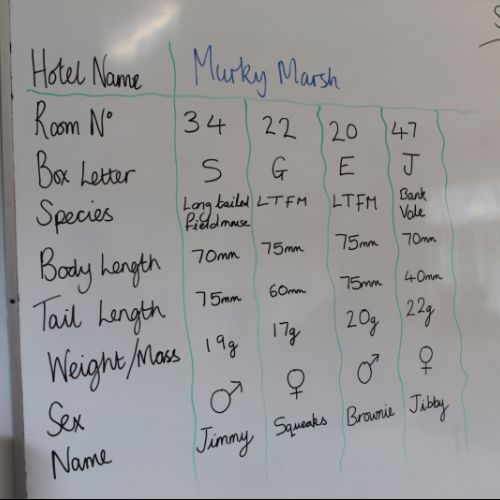 Hotel Name Murky Marsh
Room Nº 34 22 20 47
Box Letter S G E J
Species Long tailed Fieldmouse LTFM LTFM Bank Vole
Body Length 70mm 75mm 75mm 70mm
Tail Length 75mm 60mm 75mm 40mm
Weight/Mass 19g 17g 20g 22g
Sex ♂ ♀ ♂ ♀
Name Jimmy Squeaks Brownie Jibby